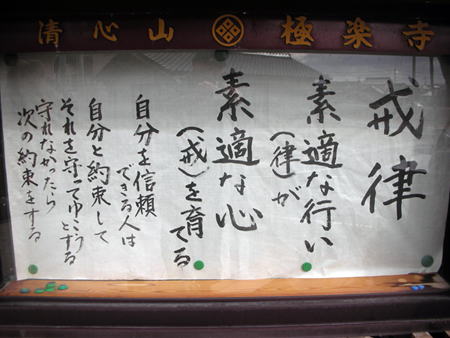 清心山 極楽寺
戒律
素適な行い
(律)が
素適な心
(戒)を育てる
自分を信頼
できる人は
自分と約束して
それを守ってゆこうとする
守れなかったら
次の約束をする